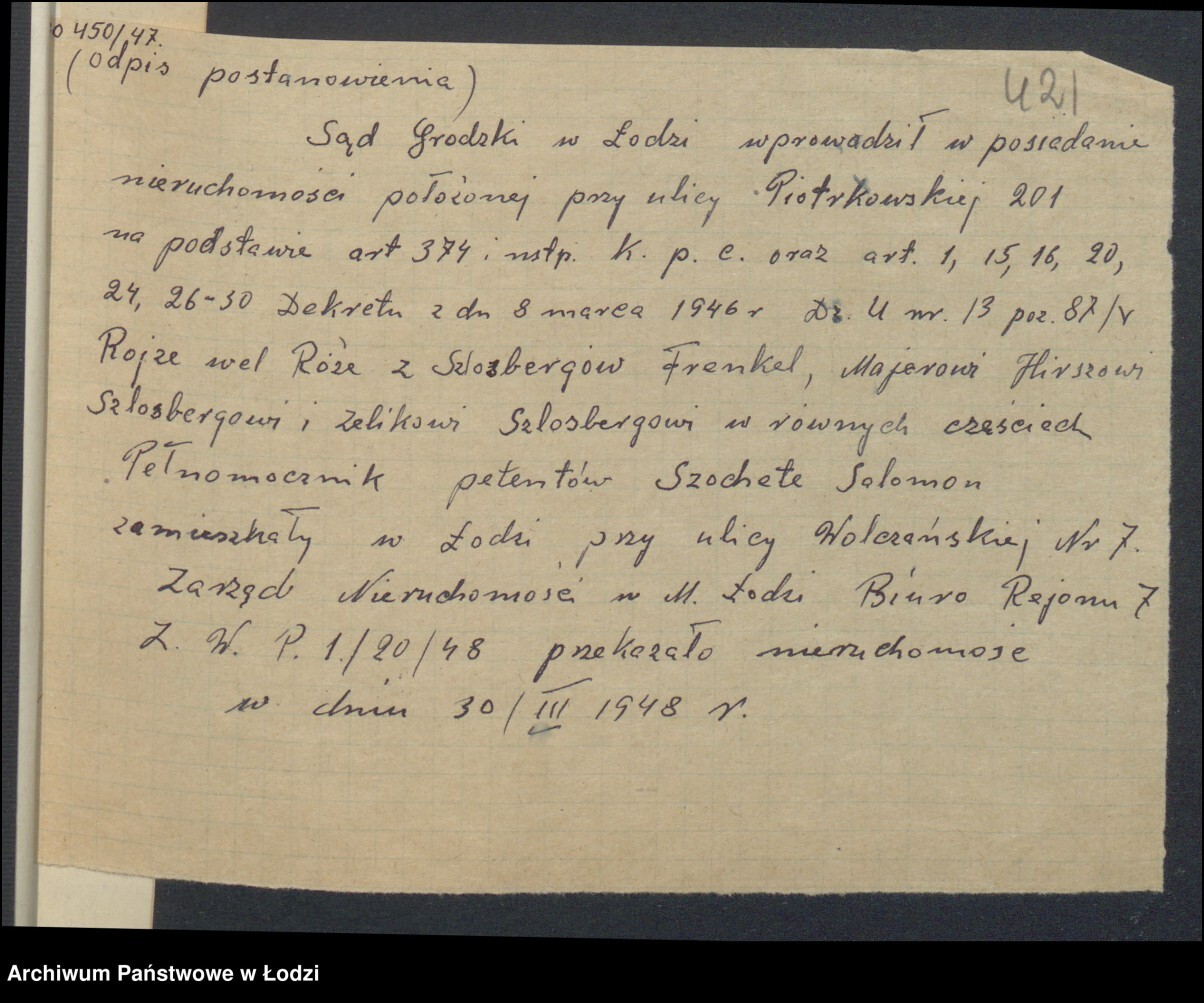 o 450/47.
(odpis postanowienia)
421
Sąd Grodzki w Łodzi wprowadził w posiadanie
nieruchomości położonej przy ulicy Piotrkowskiej 201
na podstawie art 374 i nstp. K. p. c. oraz art. 1, 15, 16, 20,
24, 26-30 Dekretu z dn 8 marca 1946 r Dz. U nr. 13 poz. 87/
Rojze wel Róże z Szlosbergów Frenkel, Majerowi Hirszowi
Szlosbergowi i Zelikowi Szlosbergowi w równych częściach
Pełnomocnik petentów Szochete Salomon
zamieszkały w Łodzi przy ulicy Wolczańskiej Nr 7.
Zarząd Nieruchomości w M. Łodzi Biuro Rejonu 7
Z. W. P. 1./20/48 przekazało nieruchomośc
w dniu 30/III 1948 r.
Archiwum Państwowe w Łodzi